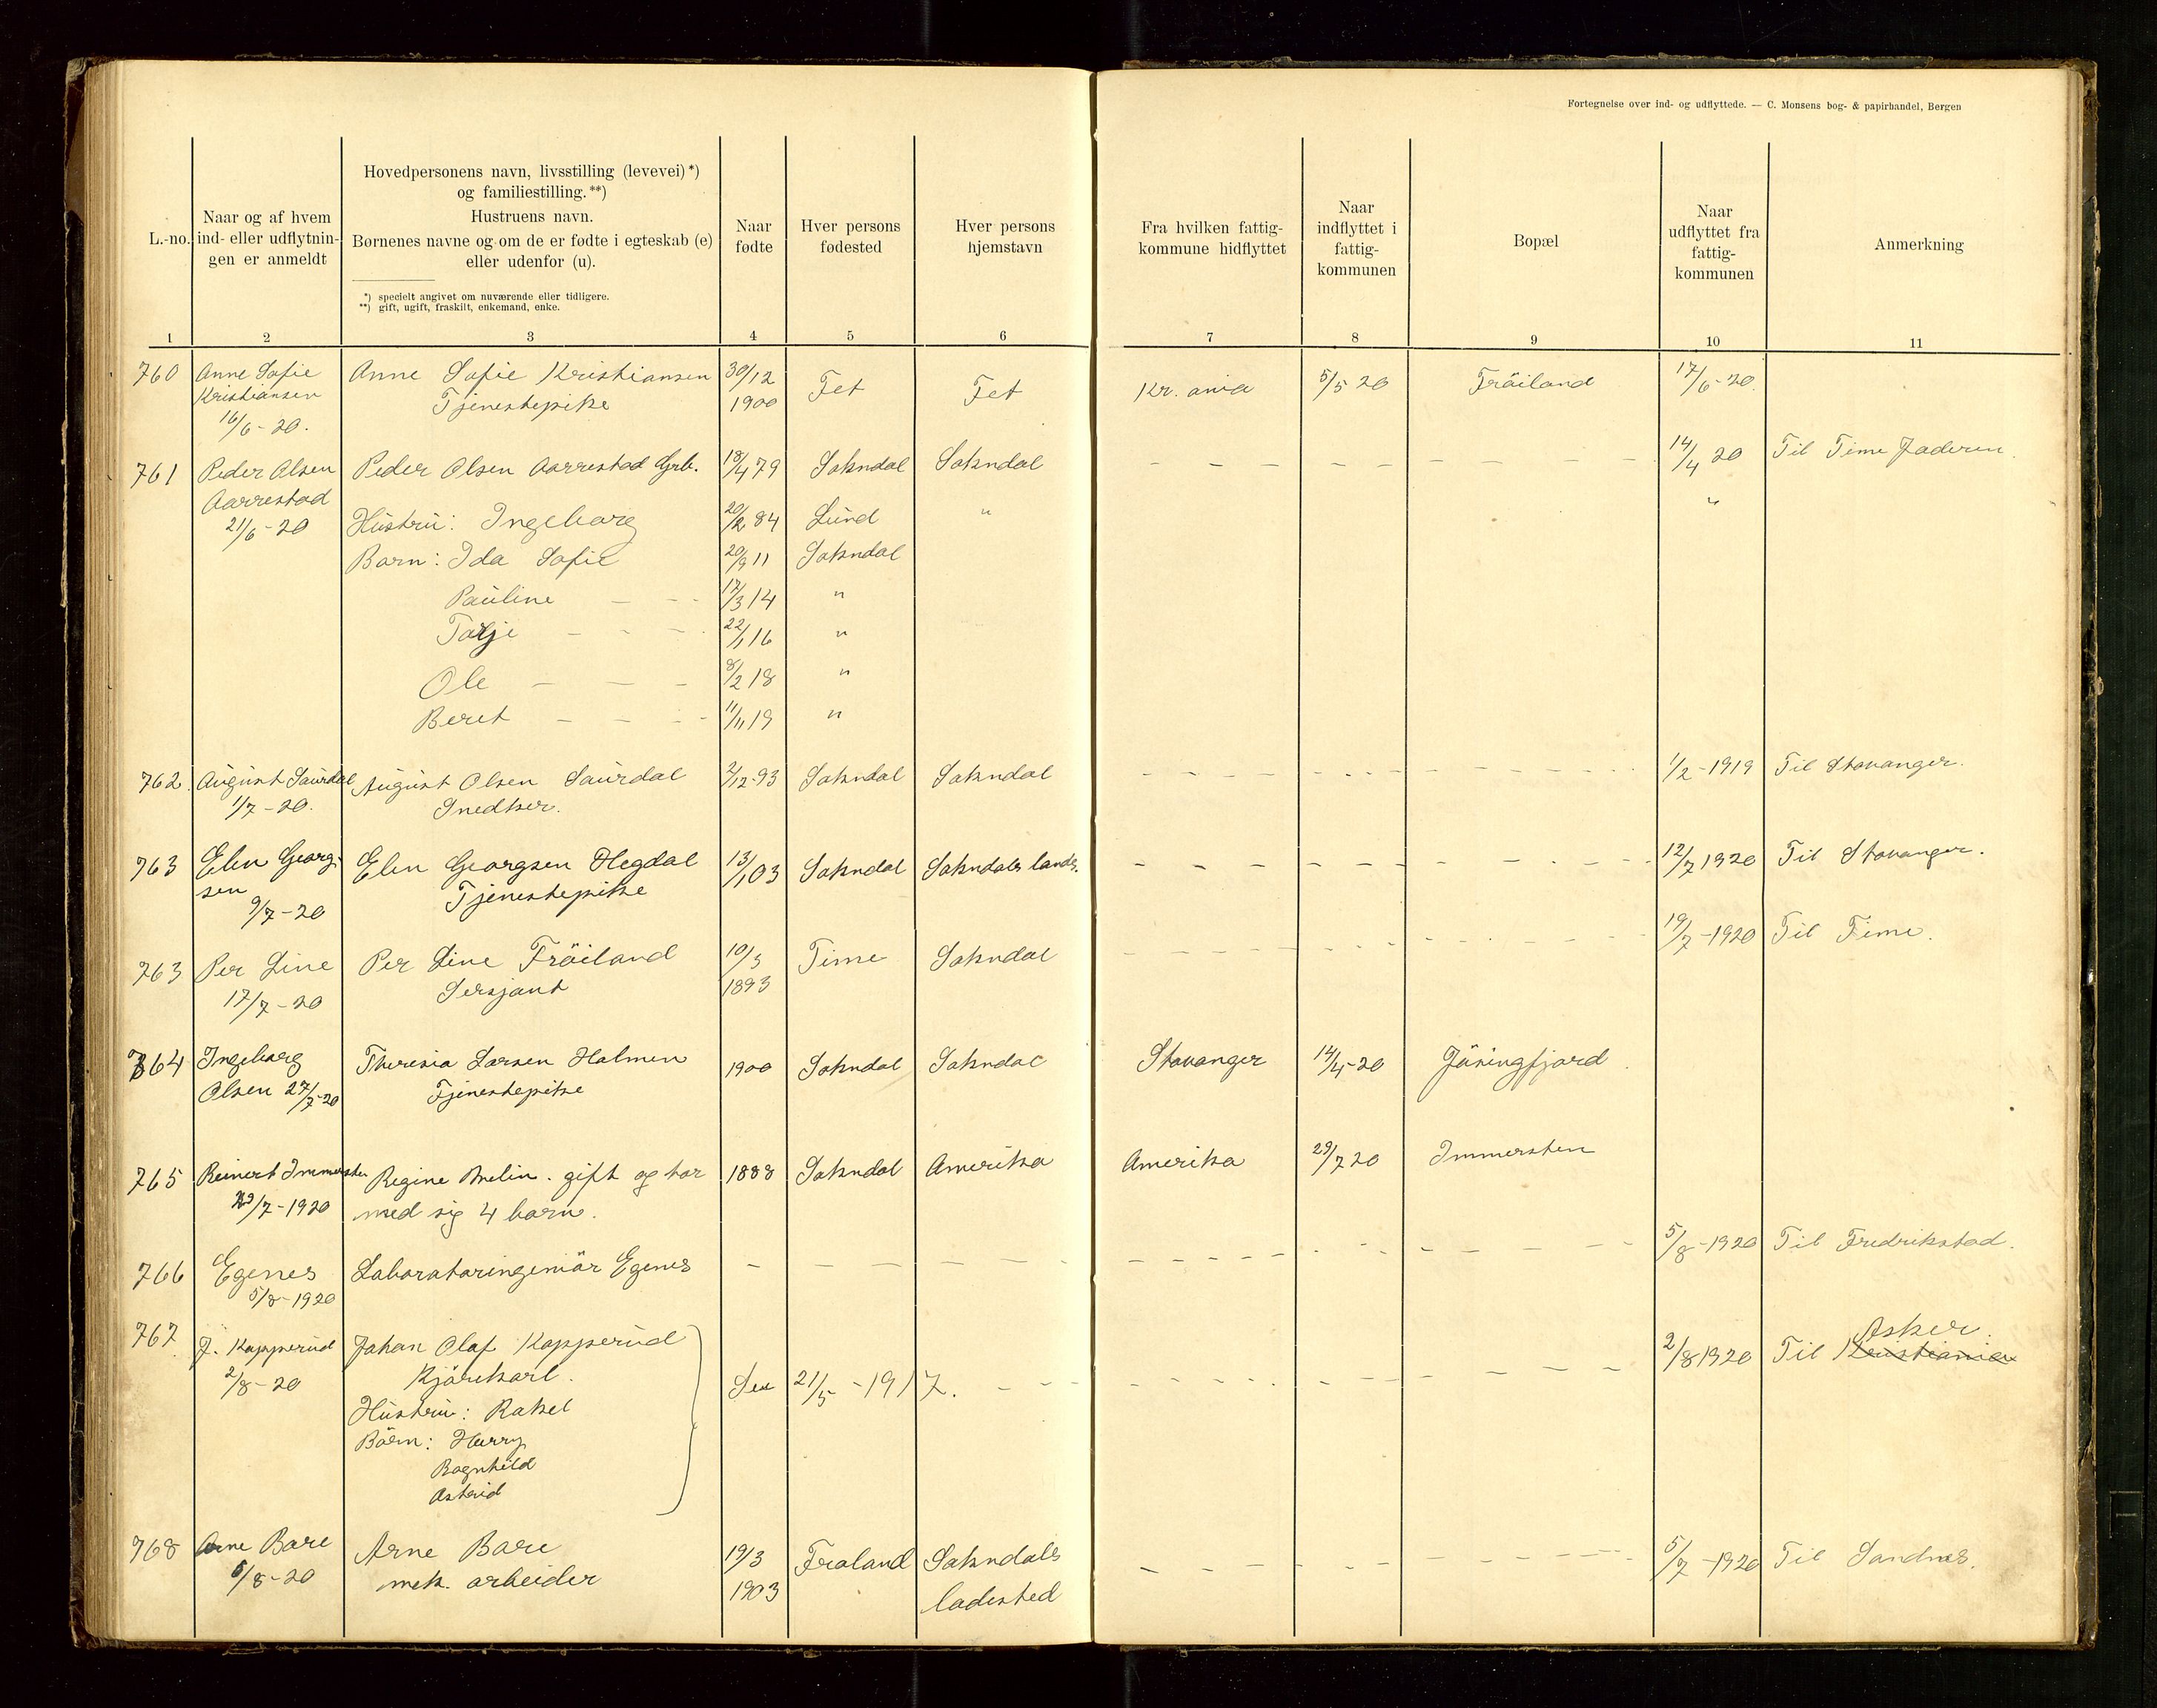 Fortegnelse over ind- og udflyttede. — C. Monsens bog- & papirhandel, Bergen
L.-no.
Naar og af hvem
ind- eller udflytnin-
gen er anmeldt
Hovedpersonens navn, livsstilling (levevei) *)
og familiestilling. **)
Hustruens navn.
Børnenes navne og om de er fødte i egteskab (e)
eller udenfor (u).
*) specielt angivet om nuværende eller tidligere.
**) gift, ugift, fraskilt, enkemand, enke.
Naar
fødte
Hver persons
fødested
Hver persons
hjemstavn
Fra hvilken fattig-
kommune hidflyttet
Naar
indflyttet i
fattig-
kommunen
Bopæl
Naar
udflyttet fra
fattig-
kommunen
Anmerkning
1 2 3 4 5 6 7 8 9 10 11
760 Anne Sofie Anne Sofie Kristiansen 30/12 Fet Fet Kr. ania 5/5 20 Fröiland 17/6-20.
Kristiansen Tjenestepike 1900
16/6-20.
761 Peder Olsen Peder Olsen Aarrestad Grb. 18/4 79 Sokndal Sokndal — — — — — — — — — 14/4 20 Til Time Jæderen.
Aarrestad
21/6-20 Hüstrü: Ingeborg 20/2 84 Lünd " "
Barn: Ida Sofie 20/9 11 Sokndal
Paüline — - - 17/3 14 "
Tarje — - - 22/1 16 "
Ole — — - 8/2 18 "
Beret — — - - 11/11 19 "
762. Aügüst Saürdal Aügüst Olsen Saürdal 2/12-93 Sokndal Sokndal - - - - - - - - - 1/2-1919 Til Stavanger.
1/7-20. Snedker.
763 Elen Georg- Elen Georgsen Hegdal 13/1 03 Sokndal Sokndals lands. - - - - - - - - - 12/7 1920 Til Stavanger.
sen Tjenestepike
9/7-20
763 Per Line Per Line Fröiland 10/3 Time Sokndal - - - - - - - - - 19/7-1920 Til Time.
17/7-20 Sersjant 1893
764 Ingeborg Theresia Larsen Holmen 1900 Sokndal Sokndal Stavanger 14/4-20 Jösingfjord
Olsen 27/7-20 Tjenestepike
765 Reinert Immersten Regine Melin. gift og har 1888 Sokndal Amerika Amerika 29/7 20 Immersten
29/7-1920 med sig 4 barn.
766 Egenes Laboratoringeniör Egenes - - - - - - - - - - - 5/8-1920 Til Fredrikstad.
5/8-1920
767. J. Kopperüd Johan Olaf Kopperüd 2/8 1920 Til Kristiania Asker.
2/8-20 Kjörekarl. Se 21/5-1917. - - - - - - - - -
Hüstrü: Rakel
Börn: Harry
Ragnhild
Astrid
768 Arne Bore Arne Bore 19/3 Froland Sokndals - - - - - - - - - 5/7-1920 Til Sandnes.
6/8-20 mek. arbeider 1903 ladested